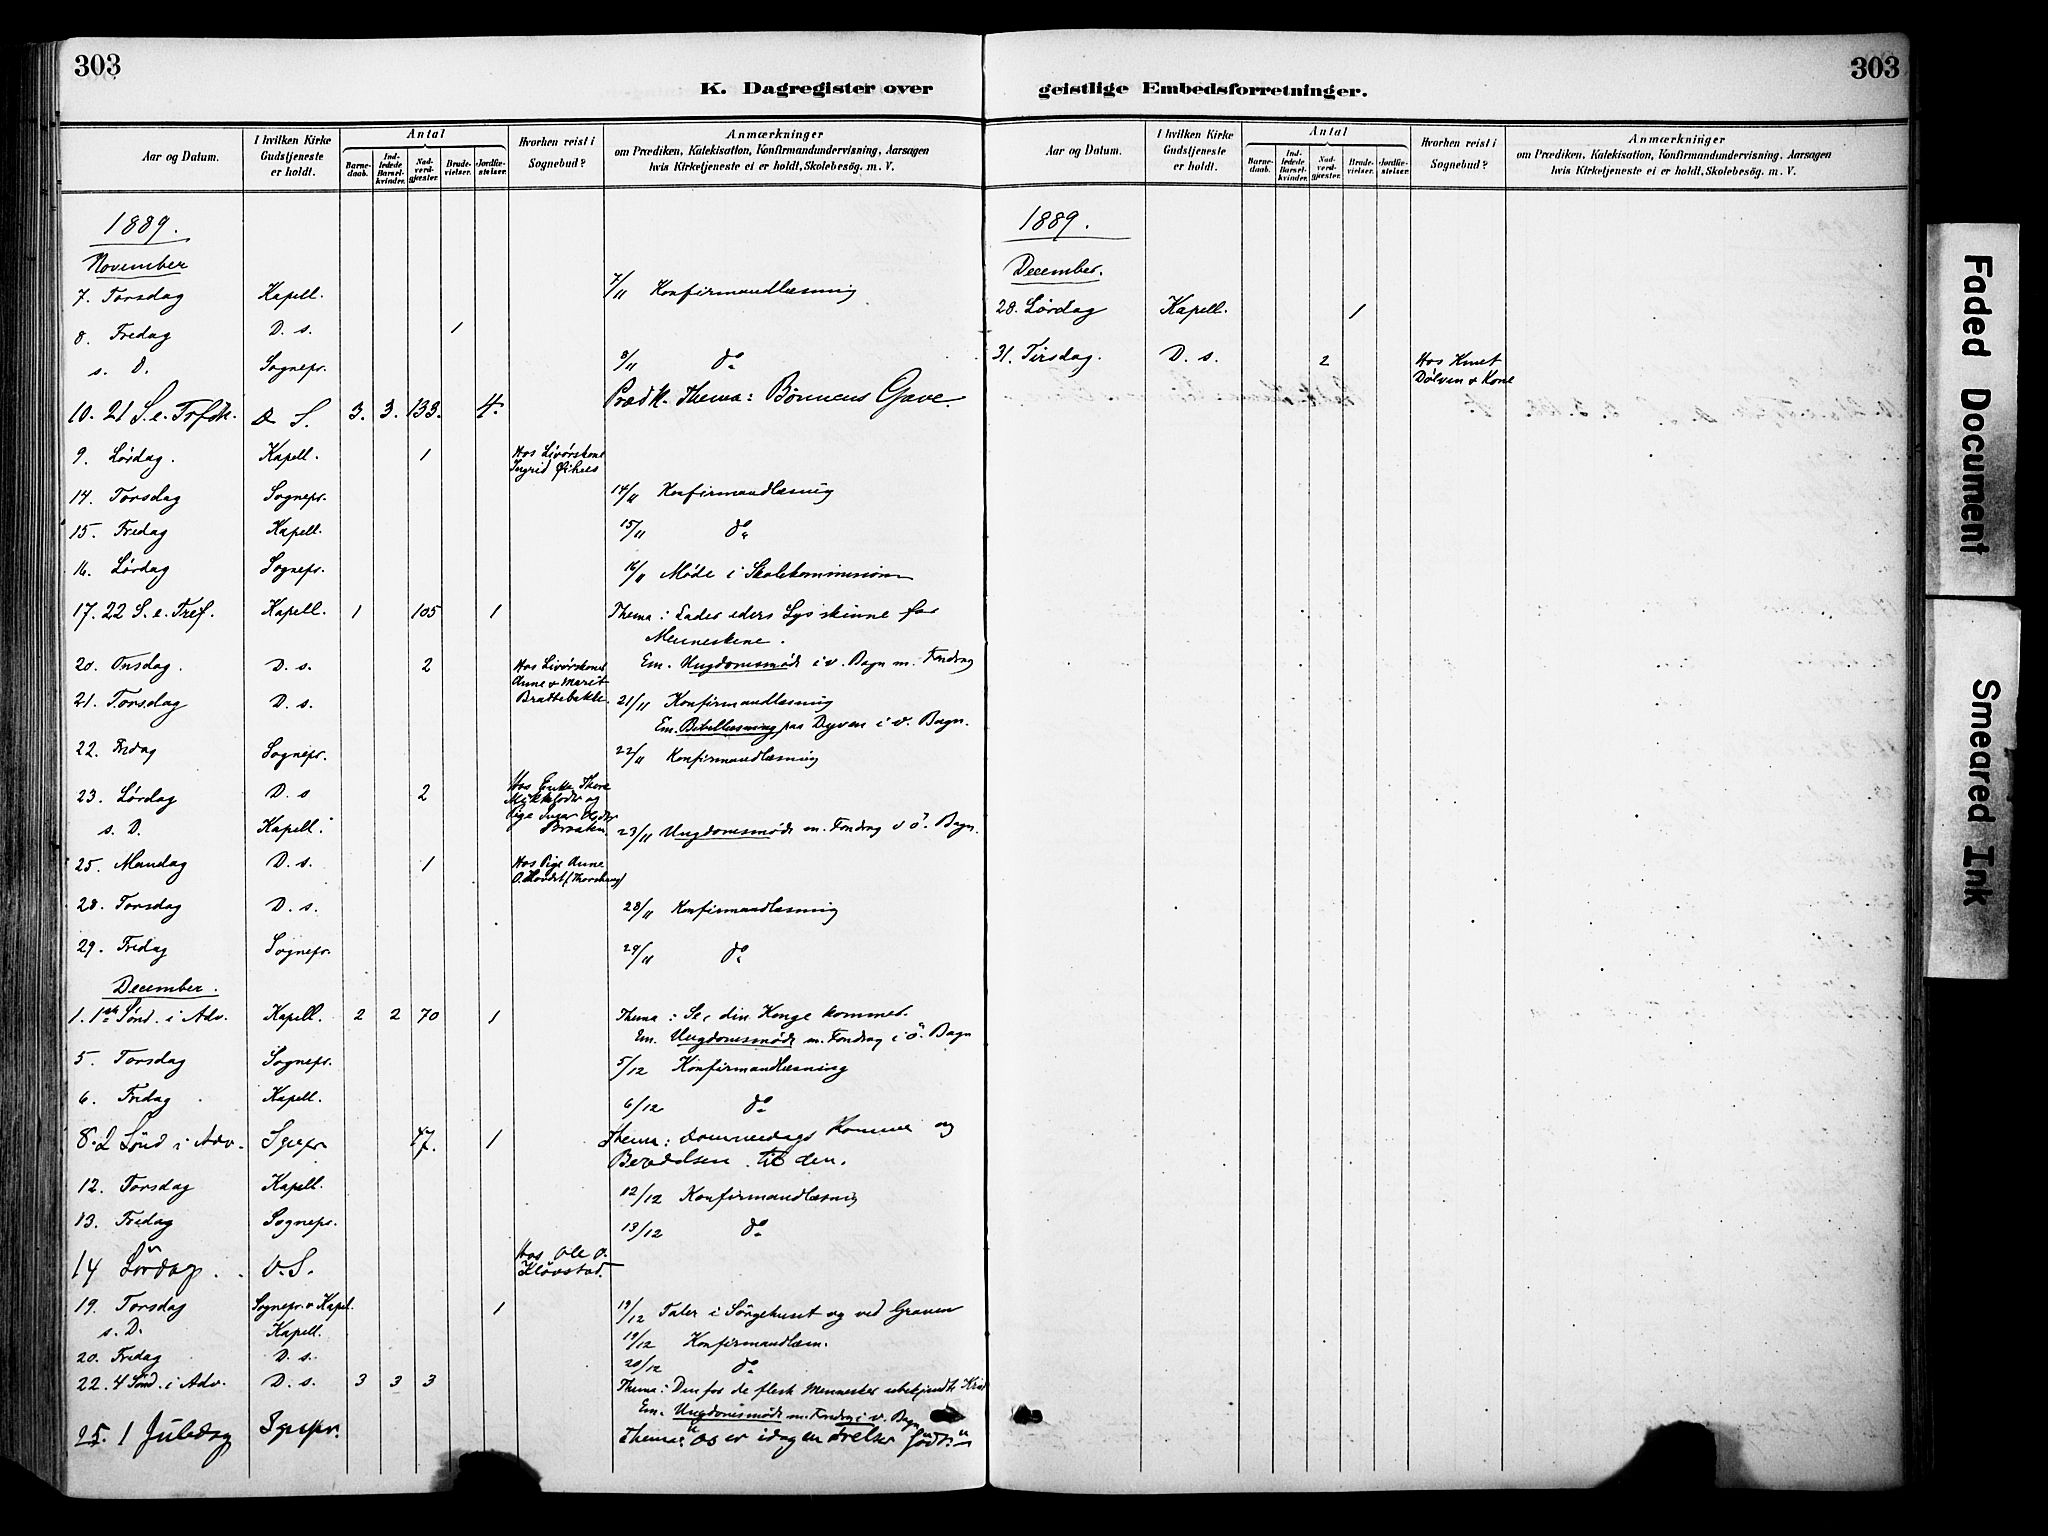 303
K. Dagregister over
Aar og Datum.
I hvilken Kirke Gudstjeneste er holdt.
Antal
Barne-daab.
Ind-ledede Barsel-kvinder.
Nad-verd-gjester.
Brude-vielser.
Jordfæ-stelser.
Hvorhen reist i Sognebud?
Anmærkninger
om Prædiken, Katekisation, Konfirmandundervisning, Aarsagen
hvis Kirketjeneste ei er holdt, Skolebesög. m. V.
1889.
November
7. Torsdag Kapell. 7/11 Konfirmandlæsning
8. Fredag D. s. 1
s. D. Sognepr. 8/11 do
10. 21 S. e. Trefth. D. S. 3. 3. 133. 4. Prædk. Thema: Bønnens Gave.
9. Lørdag. Kapell. 1 Hos Livørskone
Ingrid
14. Torsdag Sognepr. 14/11 Konfirmandlæsning
15. Fredag Kapell. 15/11 do
16. Lørdag Sognepr. 16/11 Møde i Skolekommission
17. 22 S. e. Tref. Kapell. 1 105 1 Thema: Lader eders Lys skinne for
Menneskene.
20. Onsdag. D. s. 2 Hos Livørskone Em. Ungdomsmøde i v. Bagn m. Foredrag
Anne & Marit
Brattebakke.
21. Torsdag D. s. 21/11 Konfirmandlæsning
Em. Bibellæsning paa Dyven i v. Bagn.
22. Fredag Sognepr. 22/11 Konfirmandlæsning
23. Lørdag D. s 2 Hos Enke Thore
og
Pige
Braaten.
s. D. Kapell. 23/11 Ungdomsmøde m. Foredrag i ö. Bagn.
25. Mandag D. s. 1 Hos Pige Anne
28. Torsdag D. s. 28/11 Konfirmandlæsning
29. Fredag Sognepr. 29/11 do
December.
1. 1ste Sønd. i Adv. Kapell. 2 2 70 1 Thema: Se, din Konge kommer.
Em. Ungdomsmøde m. Foredrag i ö. Bagn
5. Torsdag Sognepr. 5/12 Konfirmandlæsning
6. Fredag Kapell. 6/12 do
8. 2 Sönd i Adv. Sgnpr 47. 1 Thema: Dommedags Komme og
Beredelsen til den.
12. Torsdag Kapell. 12/12 Konfirmandlæsning
13. Fredag Sognepr. 13/12 do
14 Lördag. D. S. Hos Ole O.
Klövstad.
19. Torsdag Sognepr. & Kapel. 1 19/12 Taler i Sörgehuset og ved Graven
s. D. Kapell. 19/12 Konfirmandlæsn.
20. Fredag D. s. 20/12 do
22. 4 Sønd. i Adv. D. s. 3 3 3 Thema: Den for de fleste Mennesker ubekjendte
Em. Ungdomsmøde m. Foredrag i v. Bagn
25. 1 Juledag Sgnpr. Thema: "Os er idag en Frelser född:"
303
geistlige Embedsforretninger.
Aar og Datum.
I hvilken Kirke Gudstjeneste er holdt.
Antal
Barne-daab.
Ind-ledede Barsel-kvinder.
Nad-verd-gjester.
Brude-vielser.
Jordfæ-stelser.
Hvorhen reist i Sognebud?
Anmærkninger
om Prædiken, Katekisation, Konfirmandundervisning, Aarsagen
hvis Kirketjeneste ei er holdt, Skolebesög. m. V.
1889.
December.
28. Lørdag Kapell. 1
31. Tirsdag. D. s. 2 Hos Knut
Dölven & Kone
Faded Document
Smeared Ink